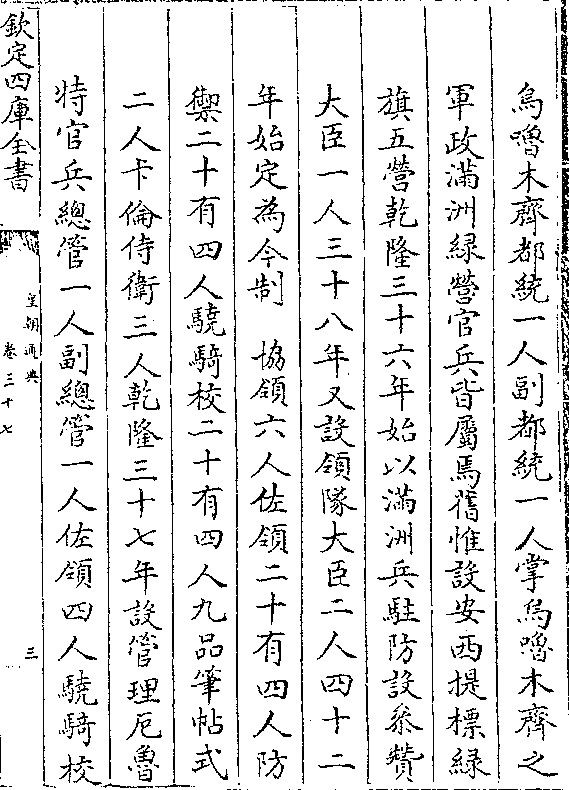 烏嚕木齊都統一人副都統一人掌烏嚕木齊之
軍政滿洲綠營官兵皆屬焉舊惟設安西提標綠
旗五營乾隆三十六年始以滿洲兵駐防設叅贊
大臣一人三十八年又設領隊大臣二人四十二
年始定為今制　協領六人佐領二十有四人防
禦二十有四人驍騎校二十有四人九品筆帖式
二人卡倫侍衛三人乾隆三十七年設管理厄魯
特官兵總管一人副總管一人佐領四人驍騎校
欽定四庫全書
皇朝通典
卷三十七
三